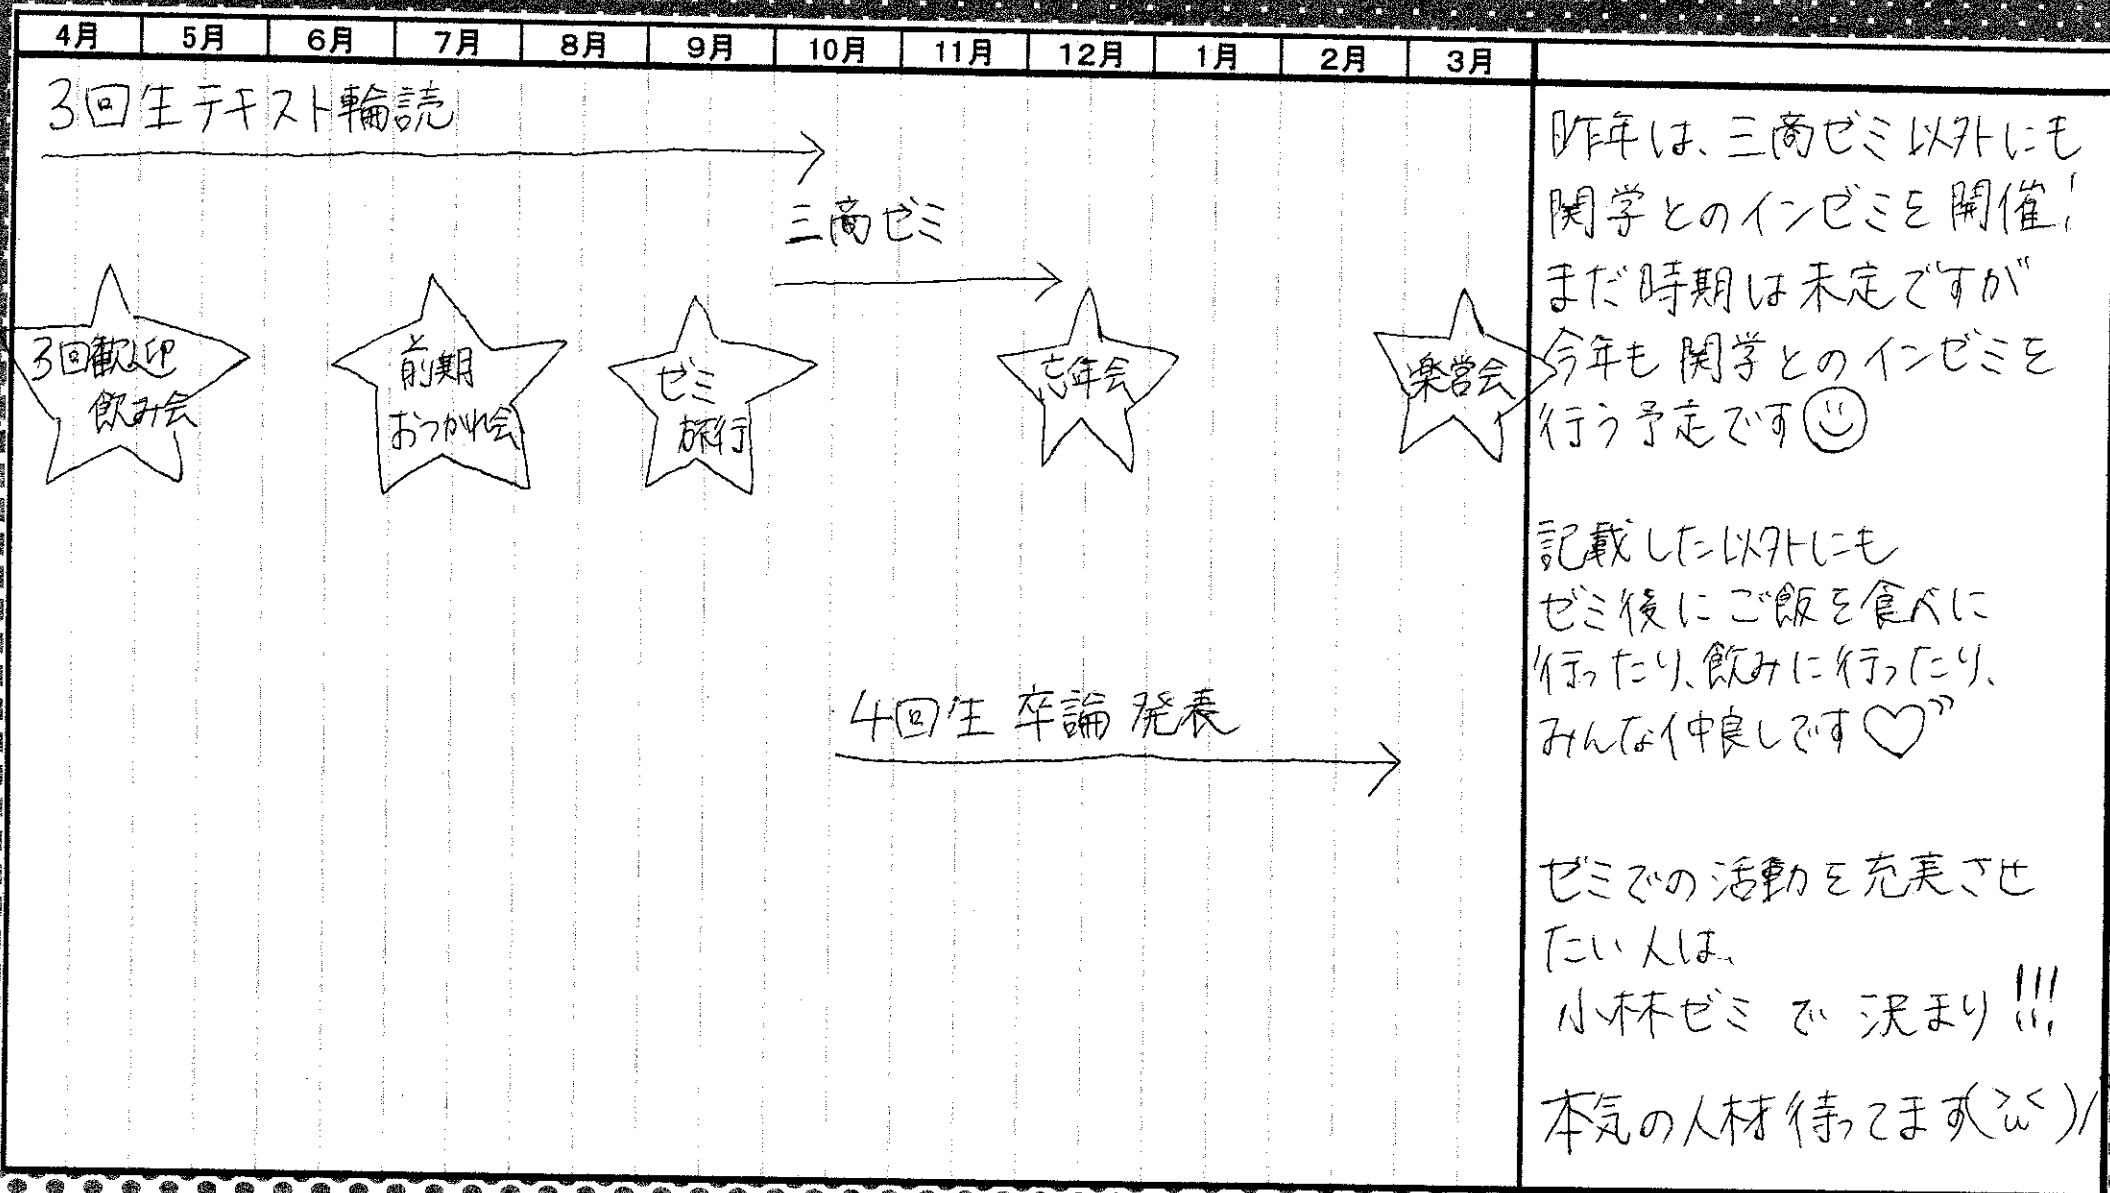 4月 5月 6月 7月 8月 9月 10月 11月 12月 1月 2月 3月
3回生テキスト輪読
三商ゼミ
3回歓迎
飲み会
前期
おつかれ会
ゼミ
旅行
忘年会
楽営会
4回生 卒論 発表
昨年は、三商ゼミ以外にも
関学とのインゼミを開催!
まだ時期は未定ですが
今年も関学とのインゼミを
行う予定です
記載した以外にも
ゼミ後にご飯を食べに
行ったり、飲みに行ったり、
みんな仲良しです♡
ゼミでの活動を充実させ
たい人は、
小林ゼミで決まり!!!
本気の人材待ってます(>ω<)/